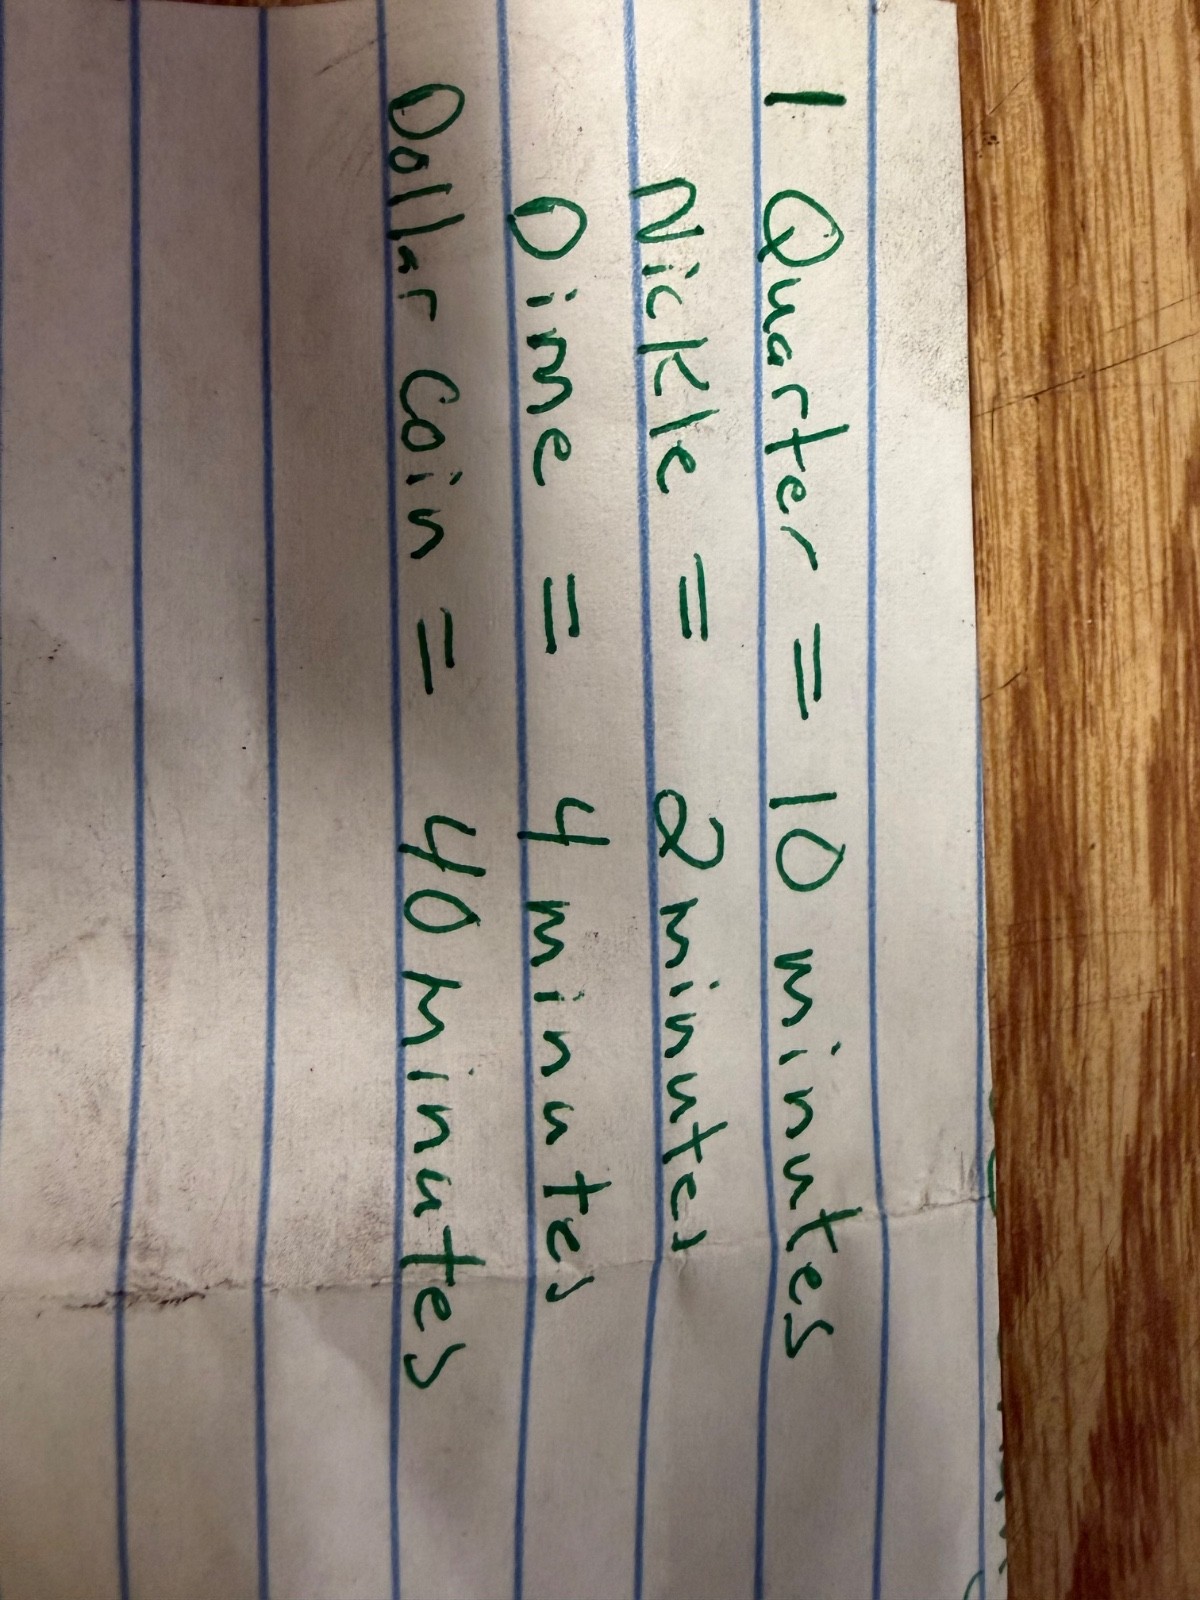 1 Quarter = 10 minutes
Nickle = 2 minutes
Dime = 4 minutes
Dollar Coin = 40 minutes